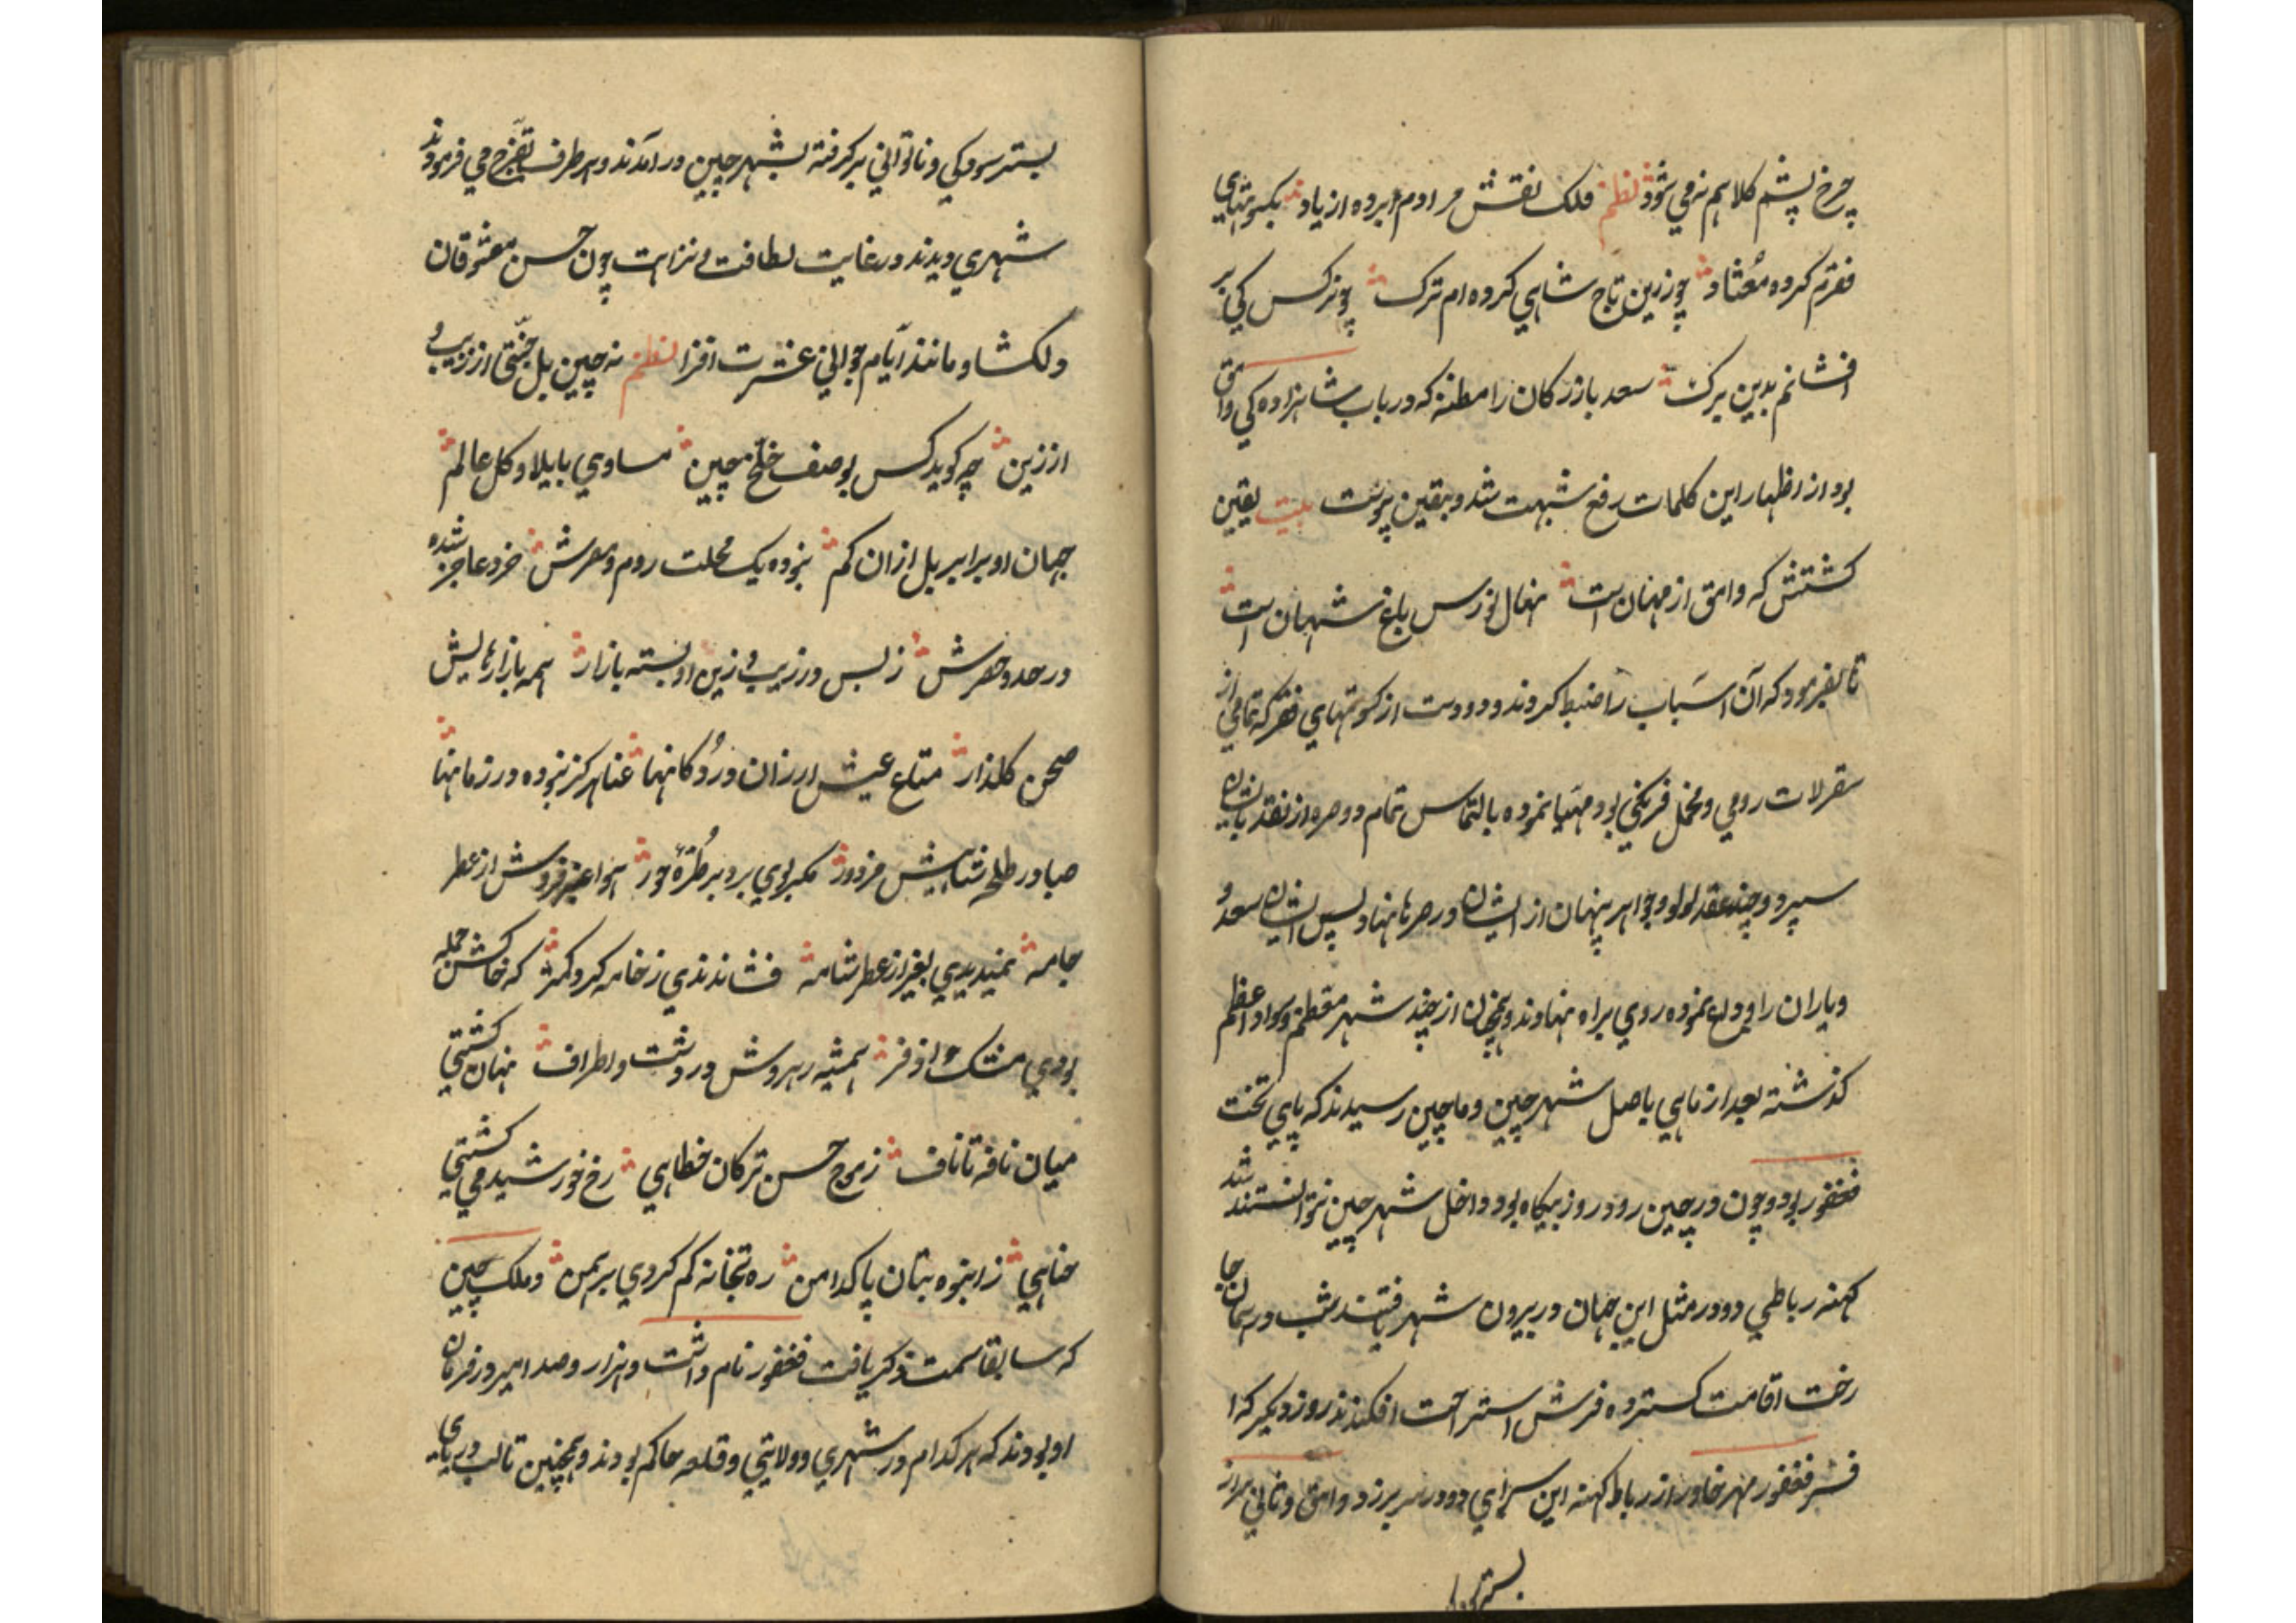 چرخ پشم کلاهم نمی شود نظم فلک نقش مرادم برده از یاد بکسوتهای
فقرم کرده معتاد چو زرین تاج شاهی کرده ام ترک چو نرکس کی بر
افشانم بدین برک سعد بازرکان را مظنه که در باب شاهزاده کی وامق
بود از اظهار این کلمات رفع شبهت شد و بیقین پیوست بیت یقین
کشتش که وامق از مهان است نهال نورس باغ شهان است
تا بفرمود که آن اسباب را ضبط کردند و دو دست از کسوتهای فقر که تمامی از
سقرلات رومی و مخمل فرنکی بود مهیا نموده بالتماس تمام دو صره از نقد بایشان
سپرد و چند عقد لولو و جواهر پنهان از ایشان در صرها نهاد پس ایشان سعد و
و یاران را وداع نموده روی براه نهادند و همچنان از چند شهر معظم و سواد اعظم
کذشته بعد از ماهی باصل شهر چین و ماچین رسیدند که پای تخت
فغفور بود و چون در چین رود روز بیکاه بود داخل شهر چین نتوانستند شد
کهنه رباطی دو در مثل این جهان در بیرون شهر یافتند شب در همان جا
رخت اقامت کسترده فرش استراحت افکندند روز دیکر که ا
فسر فغفور مهر خاور از رباط کهنه این سرای دو در سر برزد وامق و ثانی سر از
بستر سودکی
بستر سودکی و ناتوانی برکرفته بشهر چین درآمدند و هر طرف تفرج می فرمودند
شهری دیدند در غایت لطافت و نزاهت چون حسن معشوقان
دلکشا و مانند ایام جوانی عشرت افزا نظم نه چین بل جنتی از زیب و
از زین چه کوید کس بوصف خلخ چین مساوی با یلاو کل عالم
جهان او برابر بل ازان کم نبوده یک محلت روم و مصرش خرد عاجز شده
در حد و حصرش ز بس در زیب و زین او بسته بازار همه بازارهایش
صحن کلذار متاع عیش ارزان در دکانها عنا هرکز نبوده در زمانها
صبا در طلحه شناهیش مزدور مکر بوی برد بر طره حور هوا عنبر فروش از عطر
جامه نمیدیدی بغیر از عطر شامه فشاندندی ز خامه کرد کمتر که خاکش جمله
بودی مشک اذفر همیشه رهروش در دشت و اطراف نهان کشتی
میان نافه تا ناف ز موج حسن ترکان خطاهی رخ خورشید می کشتی
حناهی ز انبوه بتان پاکدامن ره بتخانه کم کردی برهمن و ملک چین
که سابقا سمت ذکر یافت فغفور نام داشت و هزار و صد امیر در فرمان
او بودند که هر کدام در شهری و ولایتی و قلعه حاکم بودند و همچنین تا لب دریای